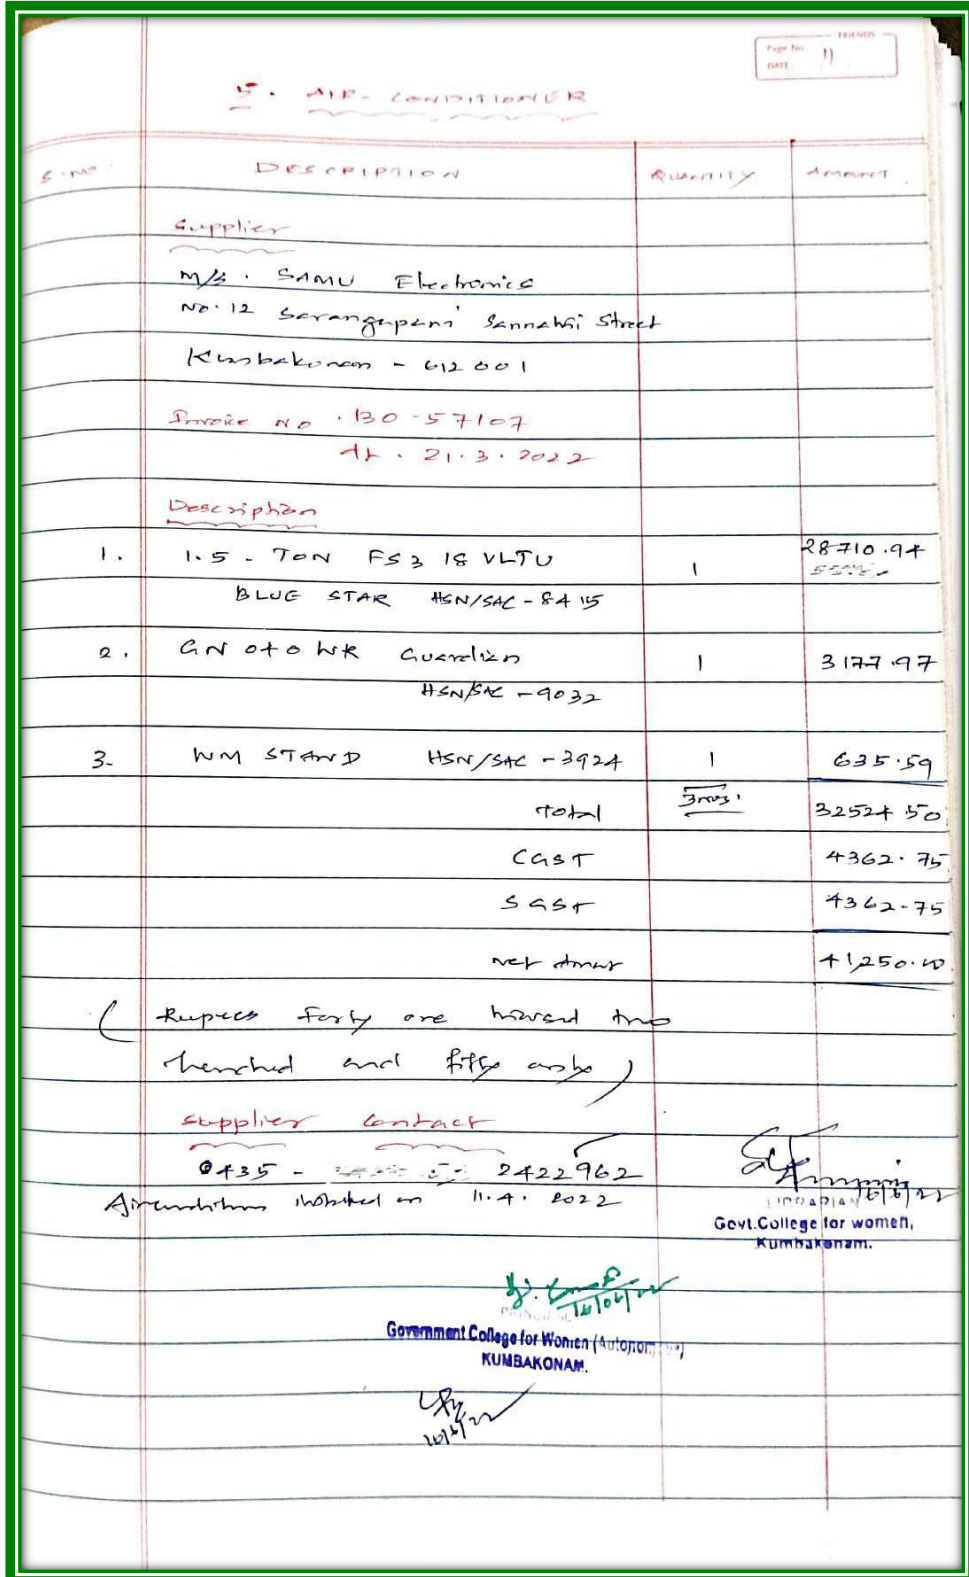 FRIENDS
Page No. 11
DATE
5. AIR-CONDITIONER
S.No. DESCRIPTION QUANTITY AMOUNT
Supplier
M/s. SAMU Electronics
No.12 Sarangapani Sannathi Street
Kumbakonam - 612 001
Invoice No. 130-57107
dt. 21.3.2022
Description
1. 1.5 - TON FS3 18 VLTU 1 28710.94
BLUE STAR HSN/SAC - 8415
2. GN 0+0 WR Guardian 1 3177.97
HSN/SAC - 9032
3- WM STAND HSN/SAC - 3924 1 635.59
Total 3nos. 32524.50
CGST 4362.75
SGST 4362-75
Net Amount 41,250.00
( Rupees Forty one thousand two
hundred and fifty only )
Supplier Contact
0435 - 2422962
Airconditioner installed on 11.4.2022
16/6/22
LIBRARIAN
Govt.College for women,
Kumbakonam.
16/06/22
PRINCIPAL
Government College for Women (Autonomous)
KUMBAKONAM.
16/6/22